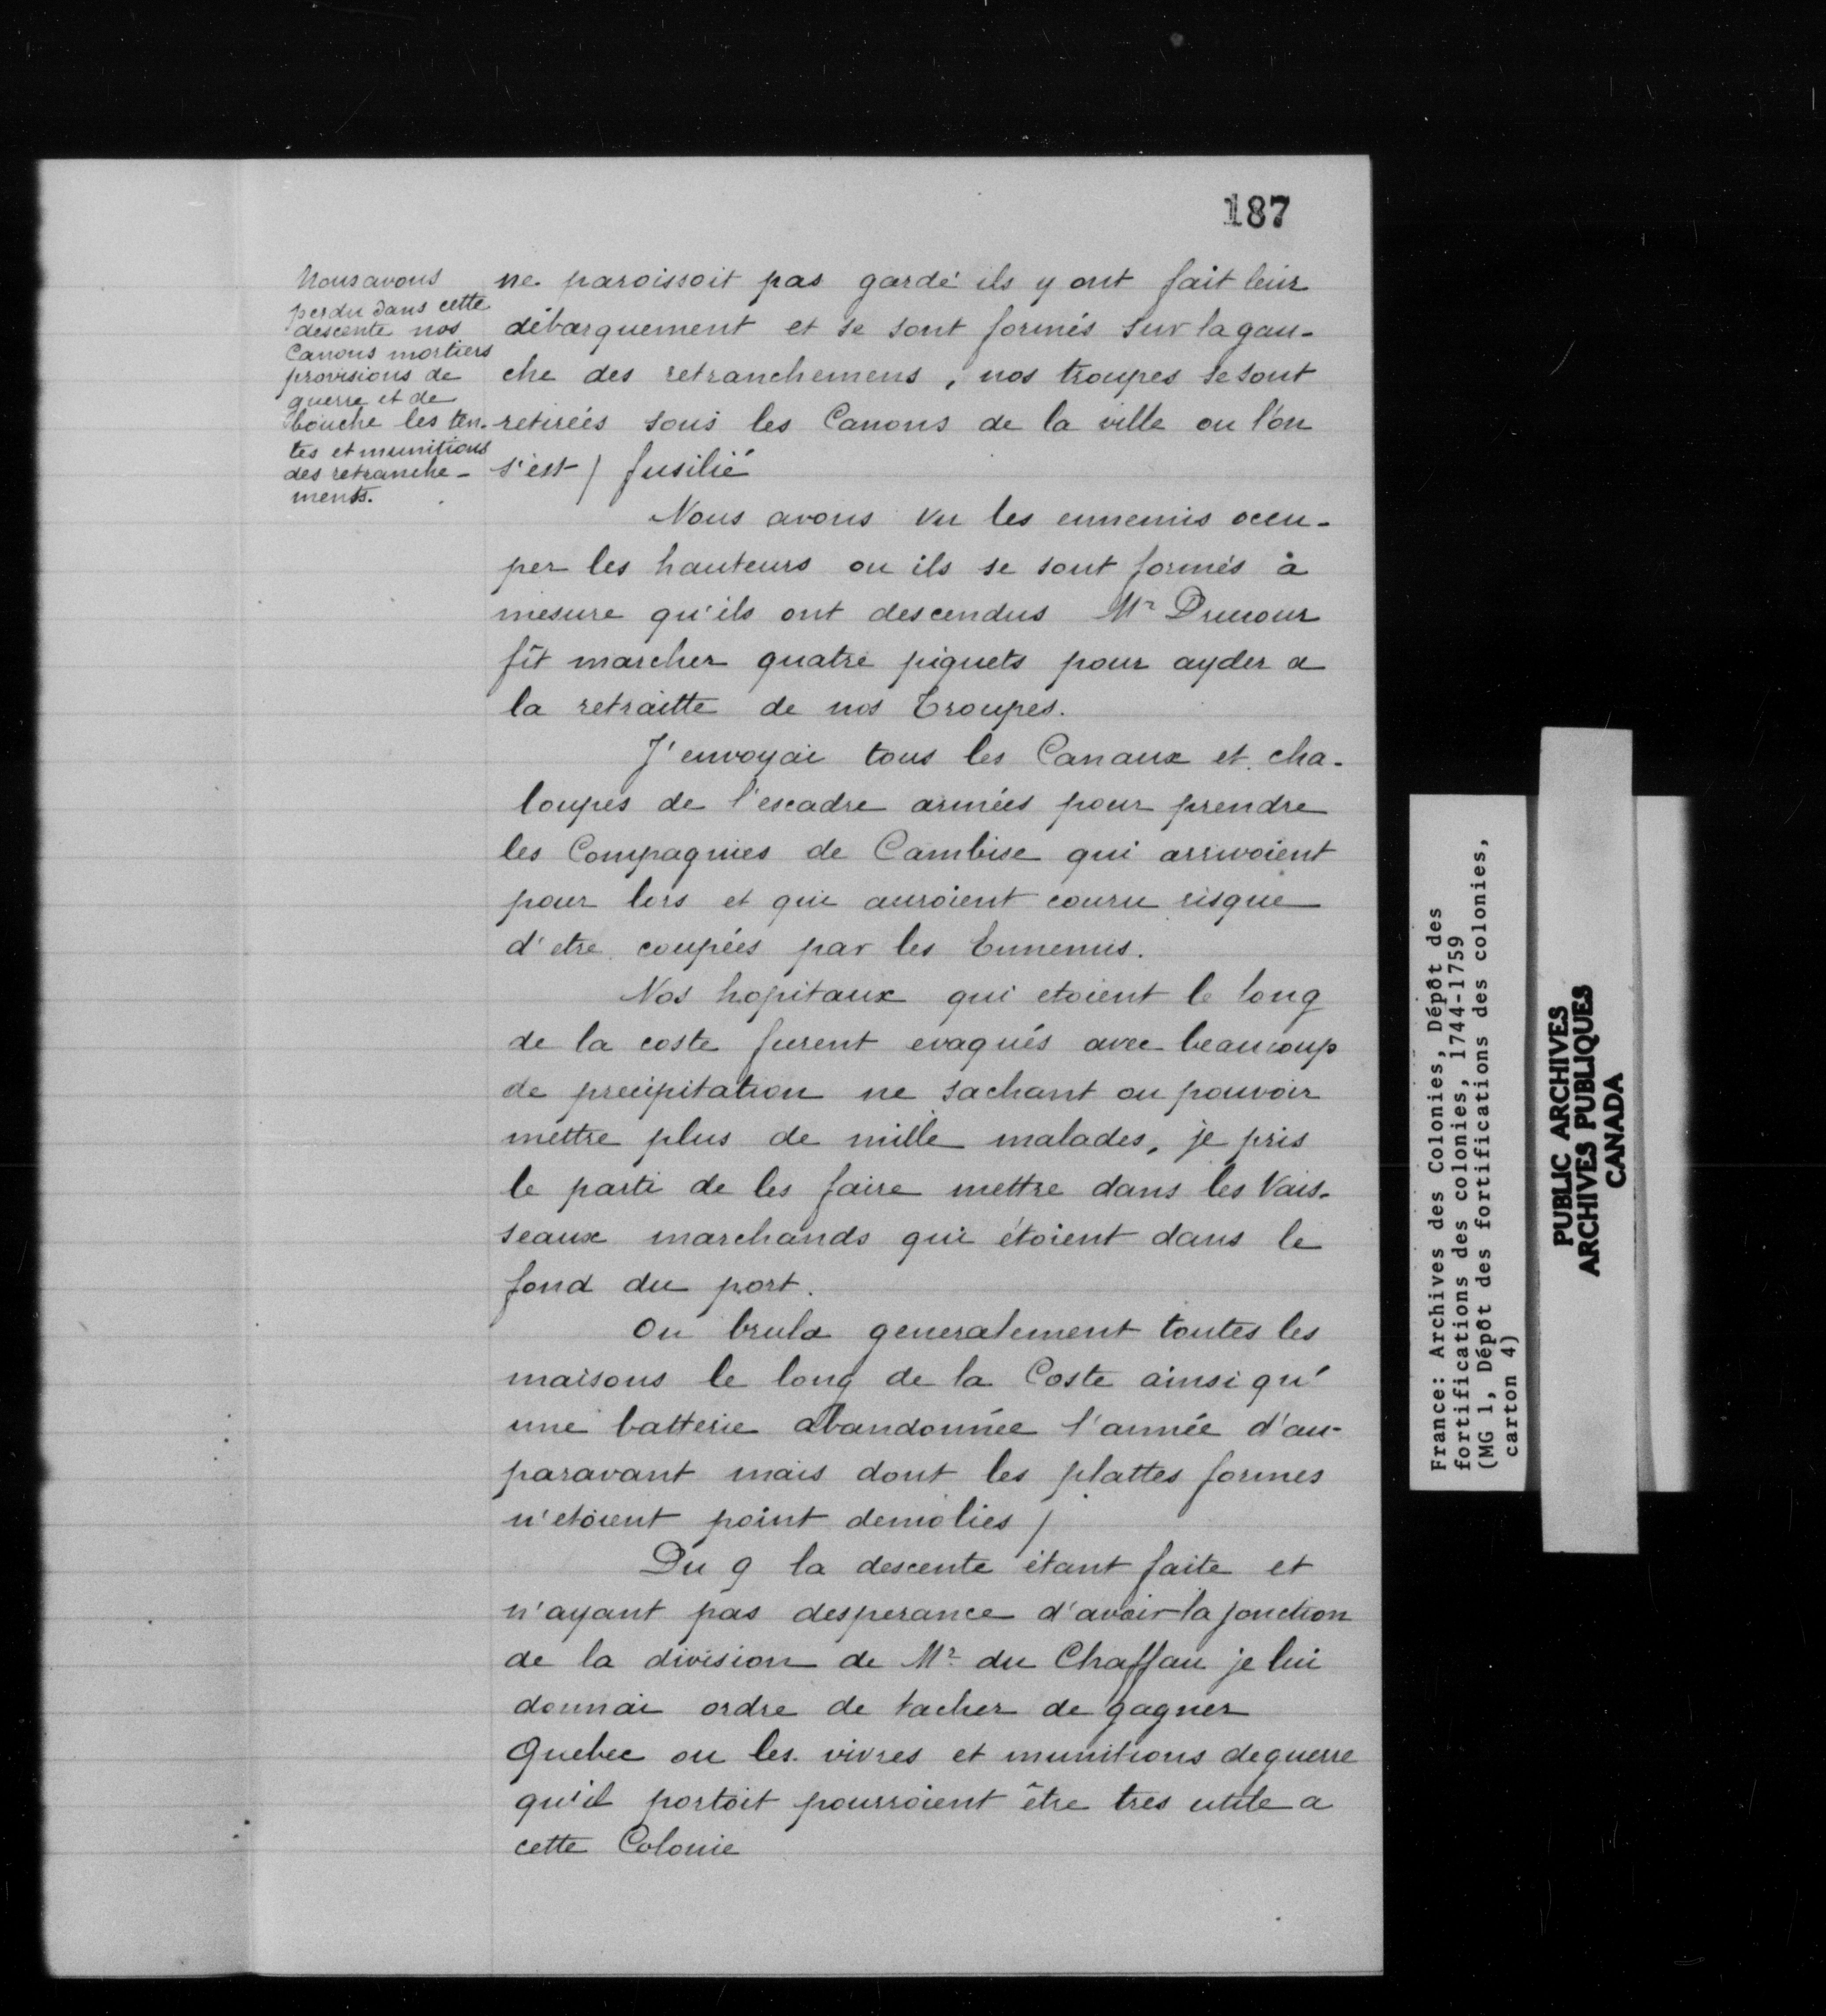 187
Nous avons
perdu dans cette
descente nos
Canons mortiers
provisions de
guerre et de
bouche les ten-
tes et munitions
des retranche-
ments.
ne paroissoit pas gardé ils y ont fait leur
débarquement et se sont formés sur la gau-
che des retranchemens, nos troupes se sont
retirées sous les Canons de la ville ou l'on
s'est / fusilié
Nous avons vu les ennemis occu-
per les hauteurs ou ils se sont formés à
mesure qu'ils ont descendus Mr Drucour
fit marcher quatre piquets pour ayder a
la retraitte de nos Troupes.
J'envoyai tous les Canaux et cha-
loupes de l'escadre armées pour prendre
les Compagnies de Cambise qui arrivoient
pour lors et qui auroient couru risque
d'etre coupées par les Ennemis.
Nos hopitaux qui etoient le long
de la coste furent evaqués avec beaucoup
de precipitation ne sachant ou pouvoir
mettre plus de mille malades, je pris
le parti de les faire mettre dans les Vais-
seaux marchands qui étoient dans le
fond du port.
On brula generalement toutes les
maisons le long de la Coste ainsi qu'
une batterie abandonnée l'année d'au-
paravant mais dont les plattes formes
n'etoient point demolies /
Du 9 la descente étant faite et
n'ayant pas desperance d'avoir la jonction
de la division de Mr du Chaffau je lui
donnai ordre de tacher de gagner
Quebec ou les vivres et munitions de guerre
qu'il portoit pourroient être tres utile a
cette Colonie
France: Archives des Colonies, Dépôt des
fortifications des colonies, 1744-1759
(MG 1, Dépôt des fortifications des colonies,
carton 4)
PUBLIC ARCHIVES
ARCHIVES PUBLIQUES
CANADA